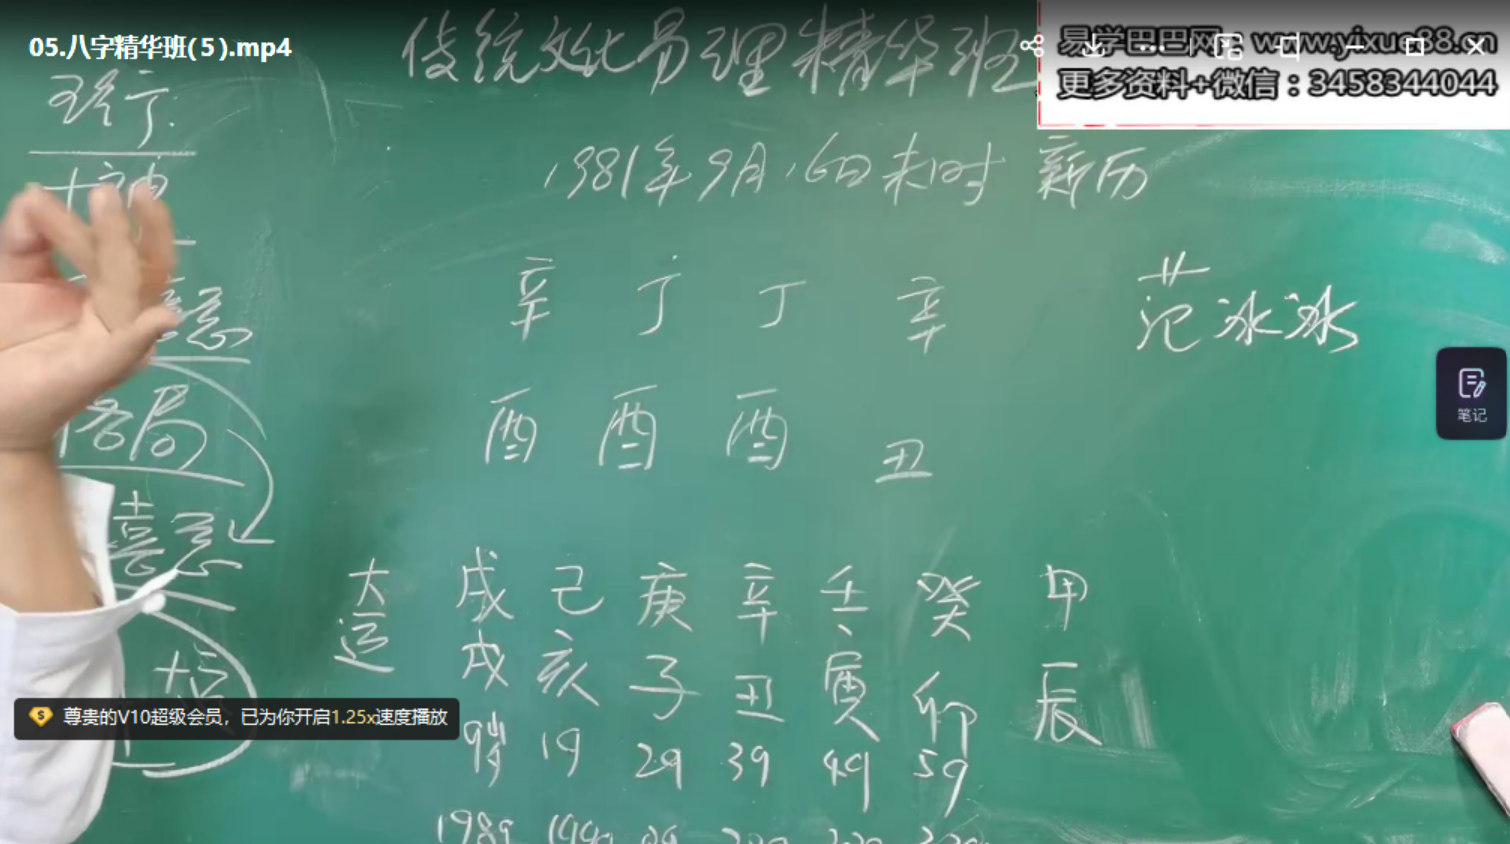 05.八字精华班(5).mp4
传统文化易理精华班
易学巴巴网：www.yixue88.cn
更多资料+微信：3458344044
五行
十神
1981年9月16日未时 新历
喜忌
辛 丁 丁 辛
范冰冰
格局
酉 酉 酉 丑
笔记
喜忌
大运
戊 己 庚 辛 壬 癸 甲
戌 亥 子 丑 寅 卯 辰
尊贵的V10超级会员，已为你开启1.25x速度播放
9岁 19 29 39 49 59
1989